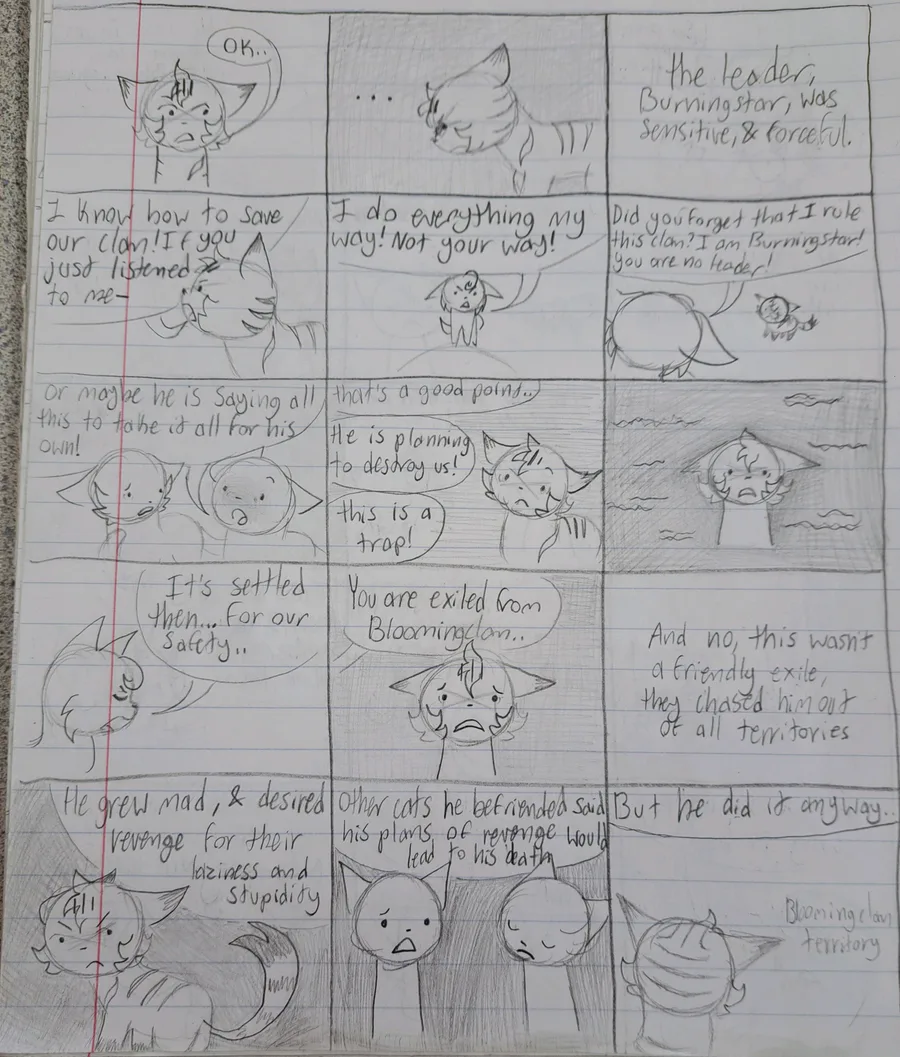 OK..
...
the leader,
Burningstar, was
sensitive, & forceful.
I know how to save
our clan! If you
just listened
to me-
I do everything my
way! Not your way!
Did you forget that I rule
this clan? I am Burningstar!
You are no leader!
Or maybe he is saying all
this to take it all for his
own!
that's a good point..
He is planning
to destroy us!
this is a
trap!
It's settled
then... For our
safety..
You are exiled from
Bloomingclan..
And no, this wasn't
a friendly exile,
they chased him out
of all territories
He grew mad, & desired
revenge for their
laziness and
stupidity
Other cats he befriended said
his plans of revenge would
lead to his death
But he did it anyway..
Bloomingclan
territory